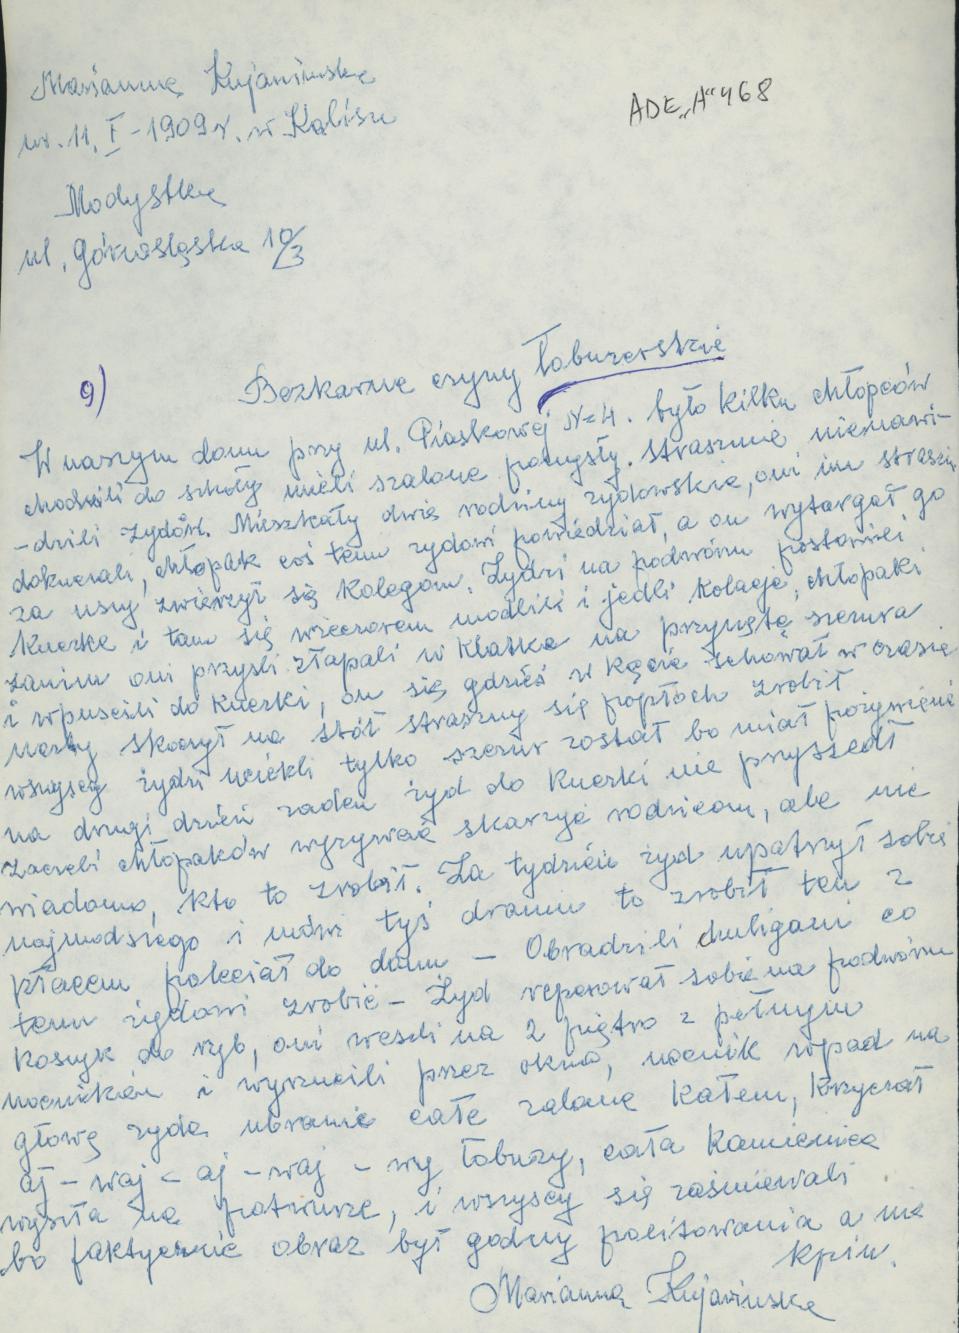 Marianna Kujawińska
ADE „A" 468
ur. 11. I - 1909 r. w Kaliszu
Modystka
ul. Górnośląska 10/3
9) Bezkarne czyny łobuzerskie
W naszym domu przy ul. Piaskowej N=4. było kilku chłopców
chodzili do szkoły mieli szalone pomysły. strasznie nienawi-
-dzili żydów. Mieszkały dwie rodziny żydowskie, oni im straszn
dokuczali, chłopak coś temu żydowi powiedział, a on wytargał go
za uszy zwierzył się kolegom. Żydzi na podwórzu postawili
Kuczkę i tam się wieczorem modlili i jedli kolacje, chłopaki
zanim oni przyszli złapali w klatkę na przynętę szczura
i wpuścili do kuczki, on się gdzieś w kącie schował w czasie
uczty skoczył na stół straszny się popłoch zrobił
wszyscy żydzi uciekli tylko szczur został bo miał pożywienie
na drugi dzień żaden żyd do kuczki nie przyszedł
Zaczeli chłopaków wyzywać skarżyć rodzicom, ale nie
wiadomo, kto to zrobił. Za tydzień żyd upatrzył sobie
najmodszego i mówi tyś draniu to zrobił ten z
płaczem poleciał do domu — Obradzili chuligani co
temu żydowi zrobić — Żyd reperował sobie na podwórzu
koszyk do ryb, oni weszli na 2 piętro z pełnym
nocnikiem i wyrzucili przez okno, nocnik wpad na
głowę żyda ubranie całe zalane kałem, krzyczał
aj - waj - aj - waj - wy łobuzy, cała kamienica
wyszła na podwórze, i wszyscy się zaśmiewali
bo faktycznie obraz był godny politowania a nie
kpin.
Marianna Kujawinska